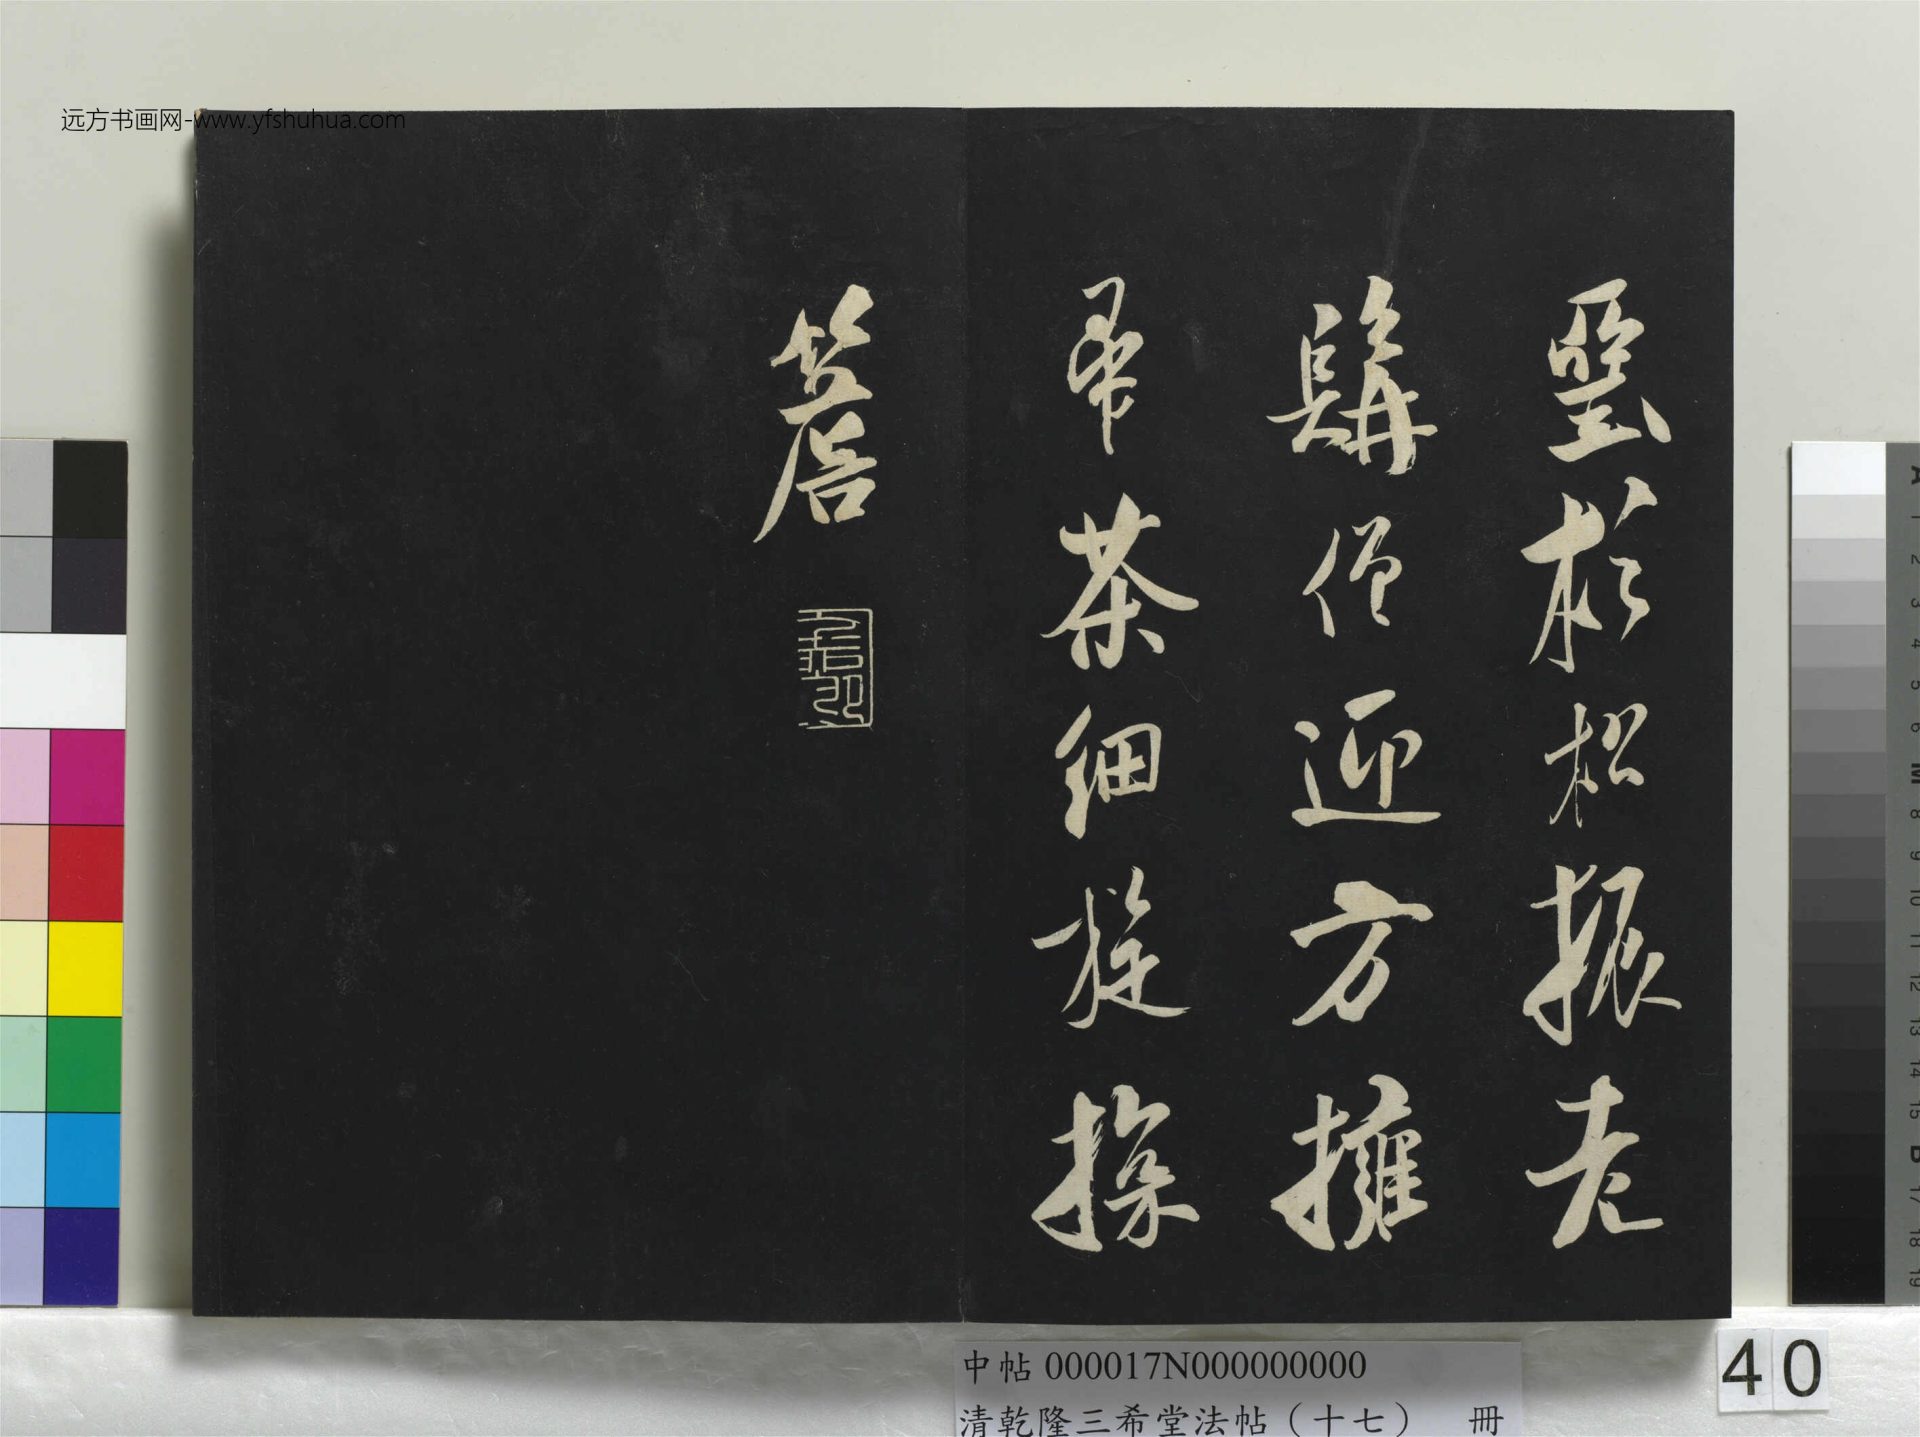 远方书画网-www.yfshuhua.com
堊杉松振老
髯僧迎方擁
帚茶細旋探
簷
中帖 000017N000000000
清乾隆三希堂法帖（十七） 冊
40
A 1 2 3 4 5 6 M 8 9 10 11 12 13 14 15 B 17 18 19